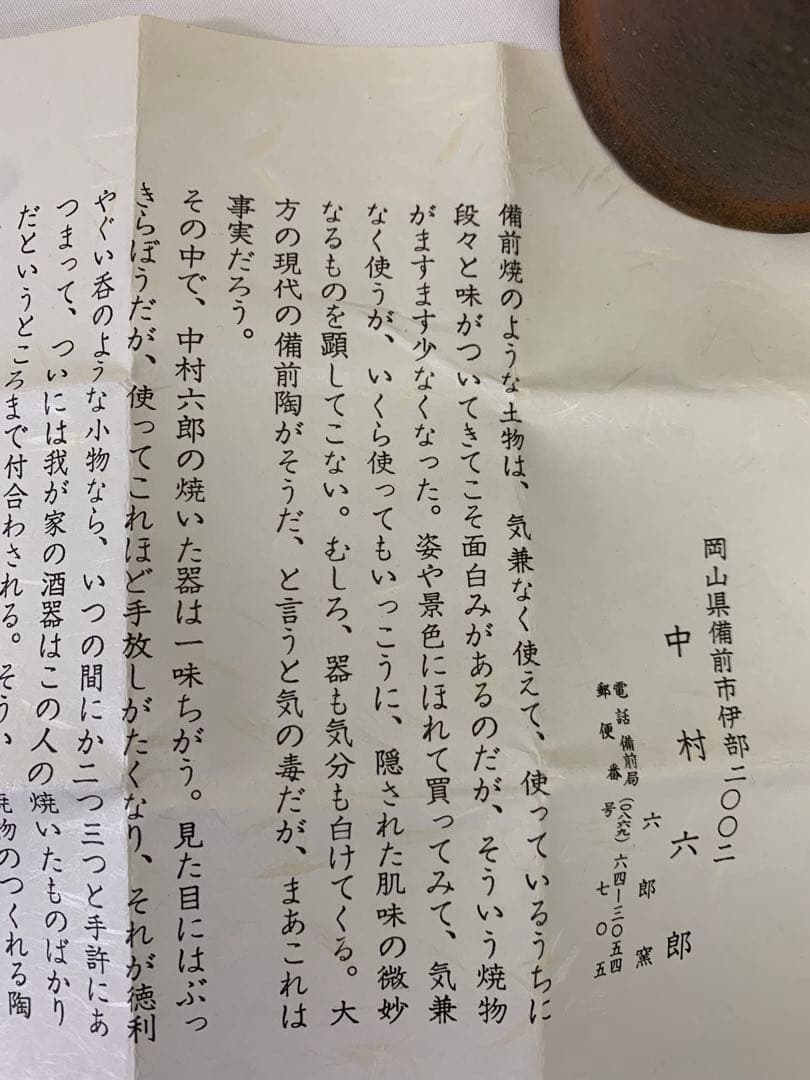 岡山県備前市伊部二〇〇二
中村六郎
六郎窯
電話備前局(〇八六九)六四ー三〇五四
郵便番号七〇五
備前焼のような土物は、気兼なく使えて、使っているうちに
段々と味がついてきてこそ面白みがあるのだが、そういう焼物
がますます少なくなった。姿や景色にほれて買ってみて、気兼
なく使うが、いくら使ってもいっこうに、隠された肌味の微妙
なるものを顕してこない。むしろ、器も気分も白けてくる。大
方の現代の備前陶がそうだ、と言うと気の毒だが、まあこれは
事実だろう。
その中で、中村六郎の焼いた器は一味ちがう。見た目にはぶっ
きらぼうだが、使ってこれほど手放しがたくなり、それが徳利
やぐい呑のような小物なら、いつの間にか二つ三つと手許にあ
つまって、ついには我が家の酒器はこの人の焼いたものばかり
だというところまで付合わされる。そう、
焼物のつくれる陶